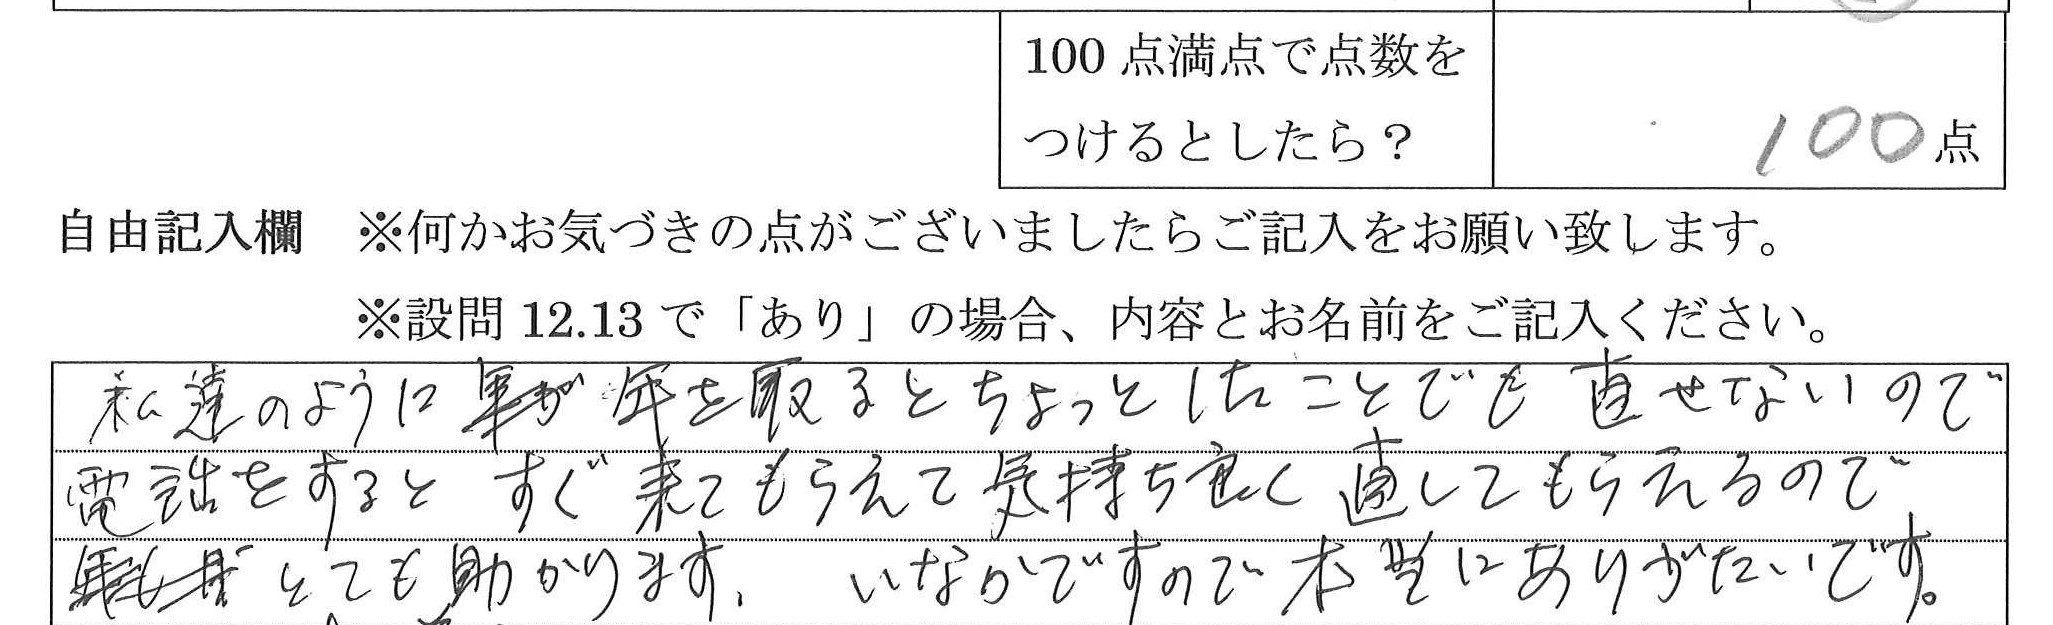 100 点満点で点数を
つけるとしたら？
100点
自由記入欄 ※何かお気づきの点がございましたらご記入をお願い致します。
※設問 12.13 で「あり」の場合、内容とお名前をご記入ください。
私達のように 年を取るとちょっとしたことでも 直せないので
電話をすると すぐ 来てもらえて 気持ち良く 直してもらえるので
とても助かります、 いなかですので本当にありがたいです。